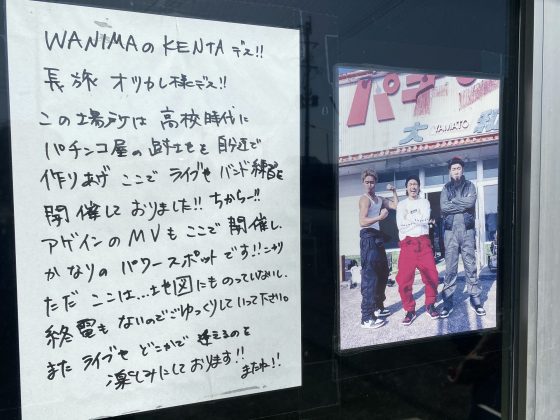 WANIMAのKENTAデス!!
長旅 オツカレ様デス!!
この場所は 高校時代に
パチンコ屋の跡地を 自分達で
作りあげ ここで ライブや バンド練習を
開催しておりました!! ちからー!!
アゲインのMVもここで 開催し、
かなりのパワースポットです!!ニヤリ
ただ ここは...土地図にものっていないし、
終電もないのでごゆっくりしていって下さい。
また ライブや どこかで 逢えるのを
楽しみにしております!! またね!!
パチ
大
YAMATO